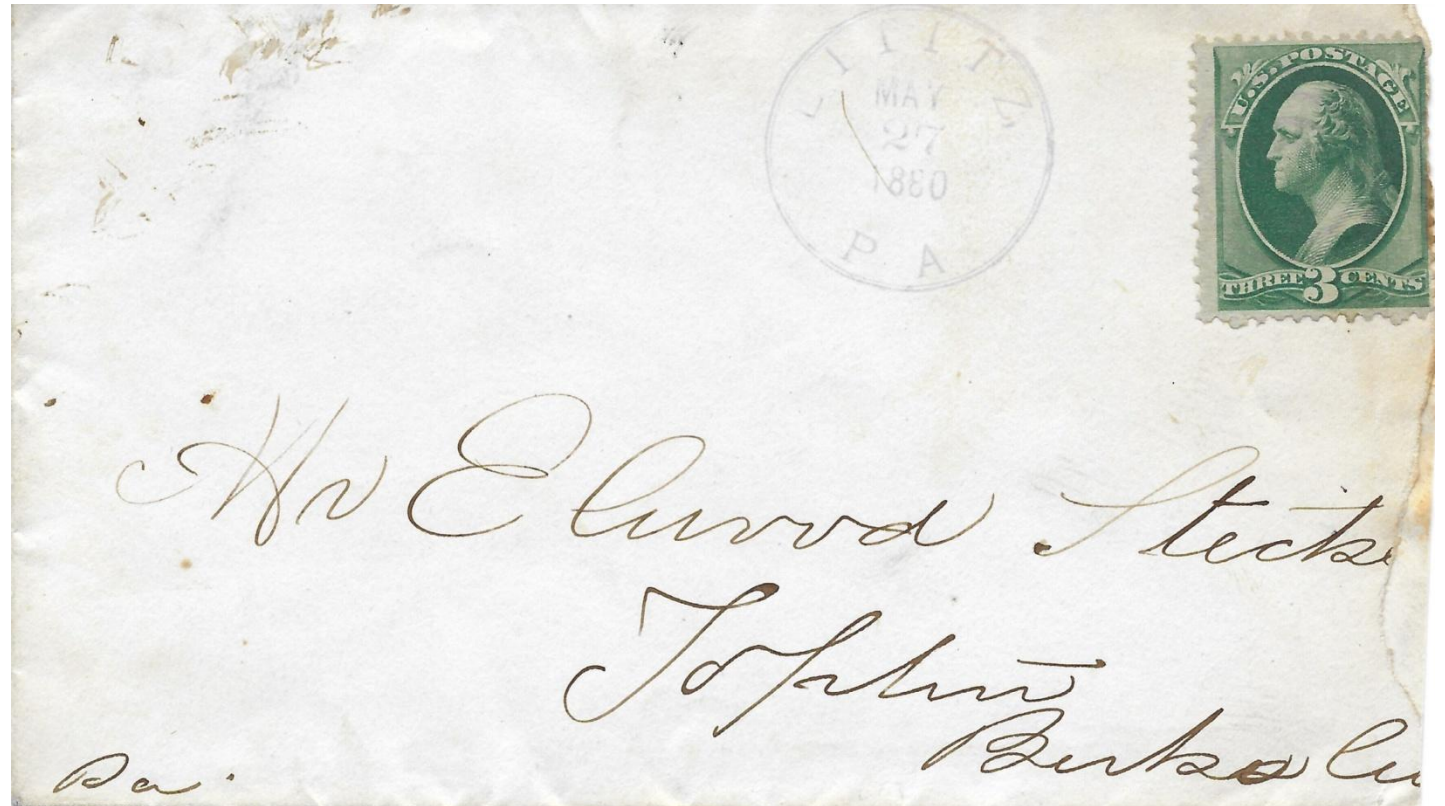 LITITZ
MAY
27
1880
PA
U.S. POSTAGE
THREE 3 CENTS
Mr Elwood Stecke
Topton
Berks Co
Pa.